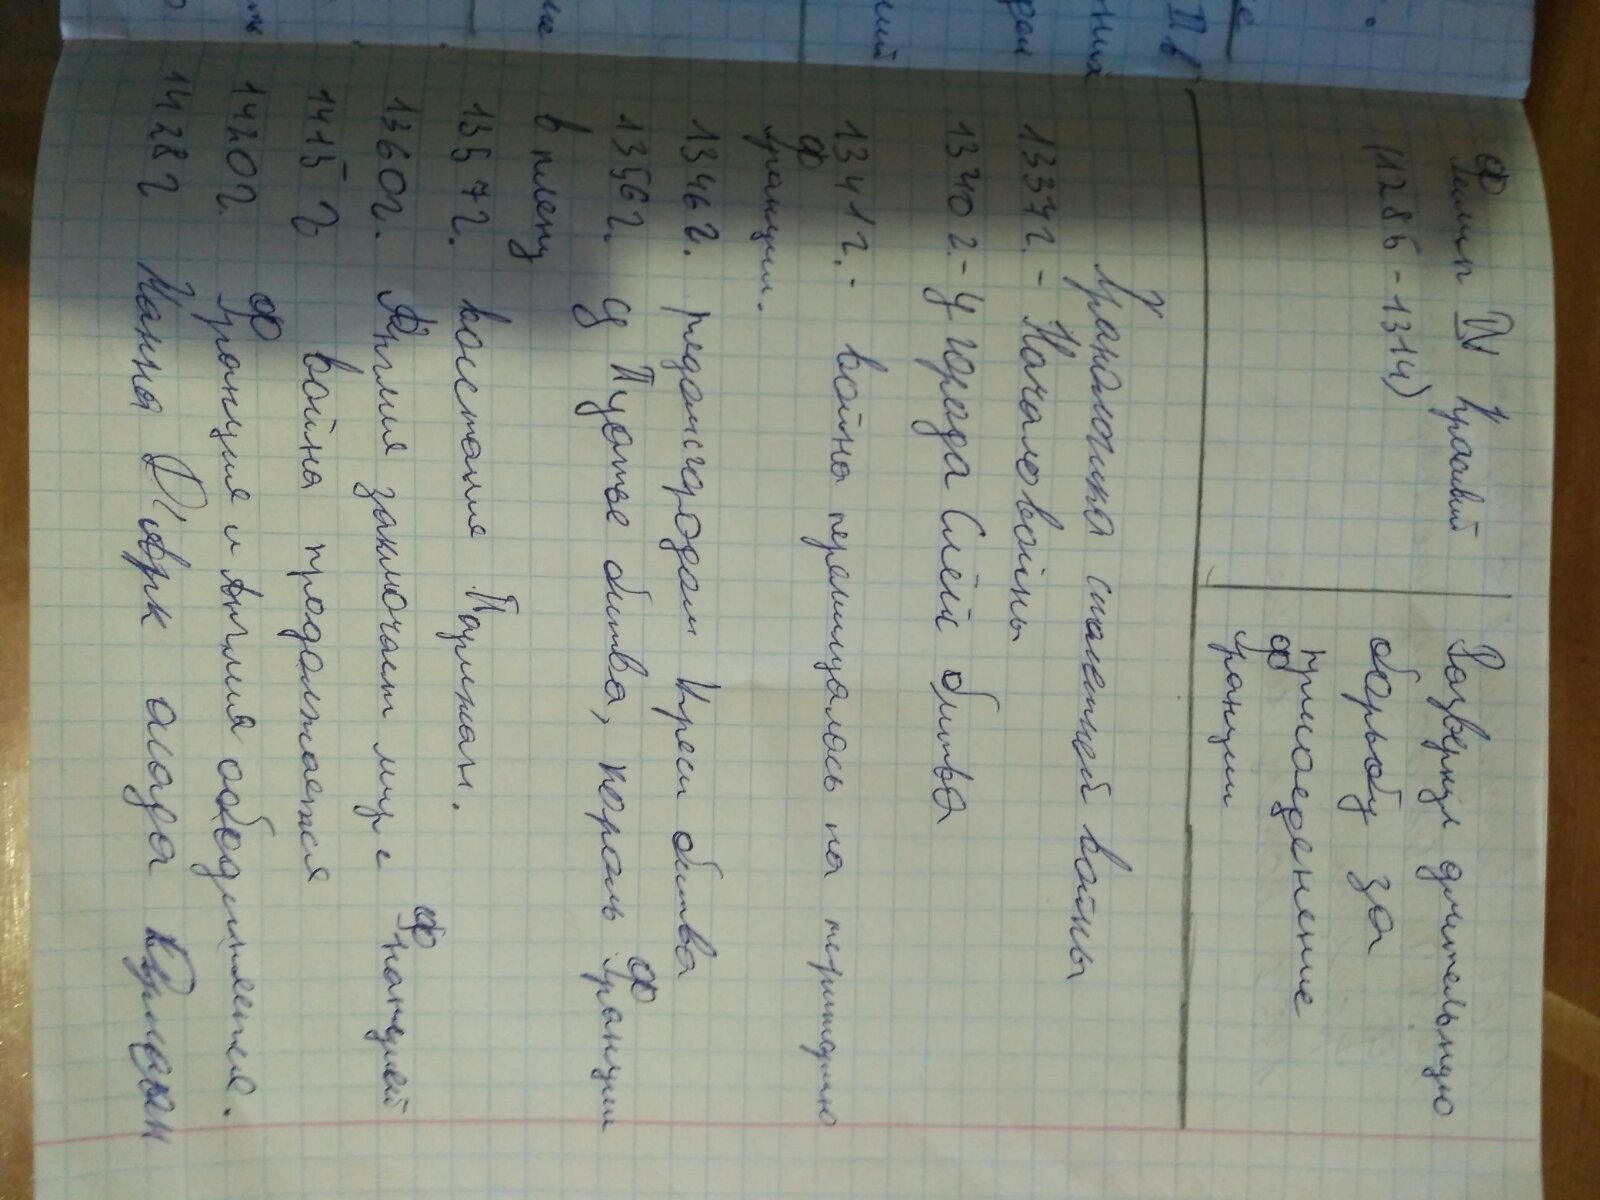 Филип IV Красивый
(1285 - 1314)
Развернул длительную
борьбу за
присоеденение
Франции
Хронология столетней войны
1337г. - Начало войны
1340 г. - У города Слёй битва
1341 г. - война перешуалась на териториию
Франции.
1346 г. рядом с городом Креси битва
1356 г. У Пуатье битва, король Франции
в плену
1357 г. восстания Парижан.
1360г. Англия заключает мир с Францией
1415 г война продолжается
1420г. Франция и Англия объединяется.
1428 г Жанна Д'Арк осада